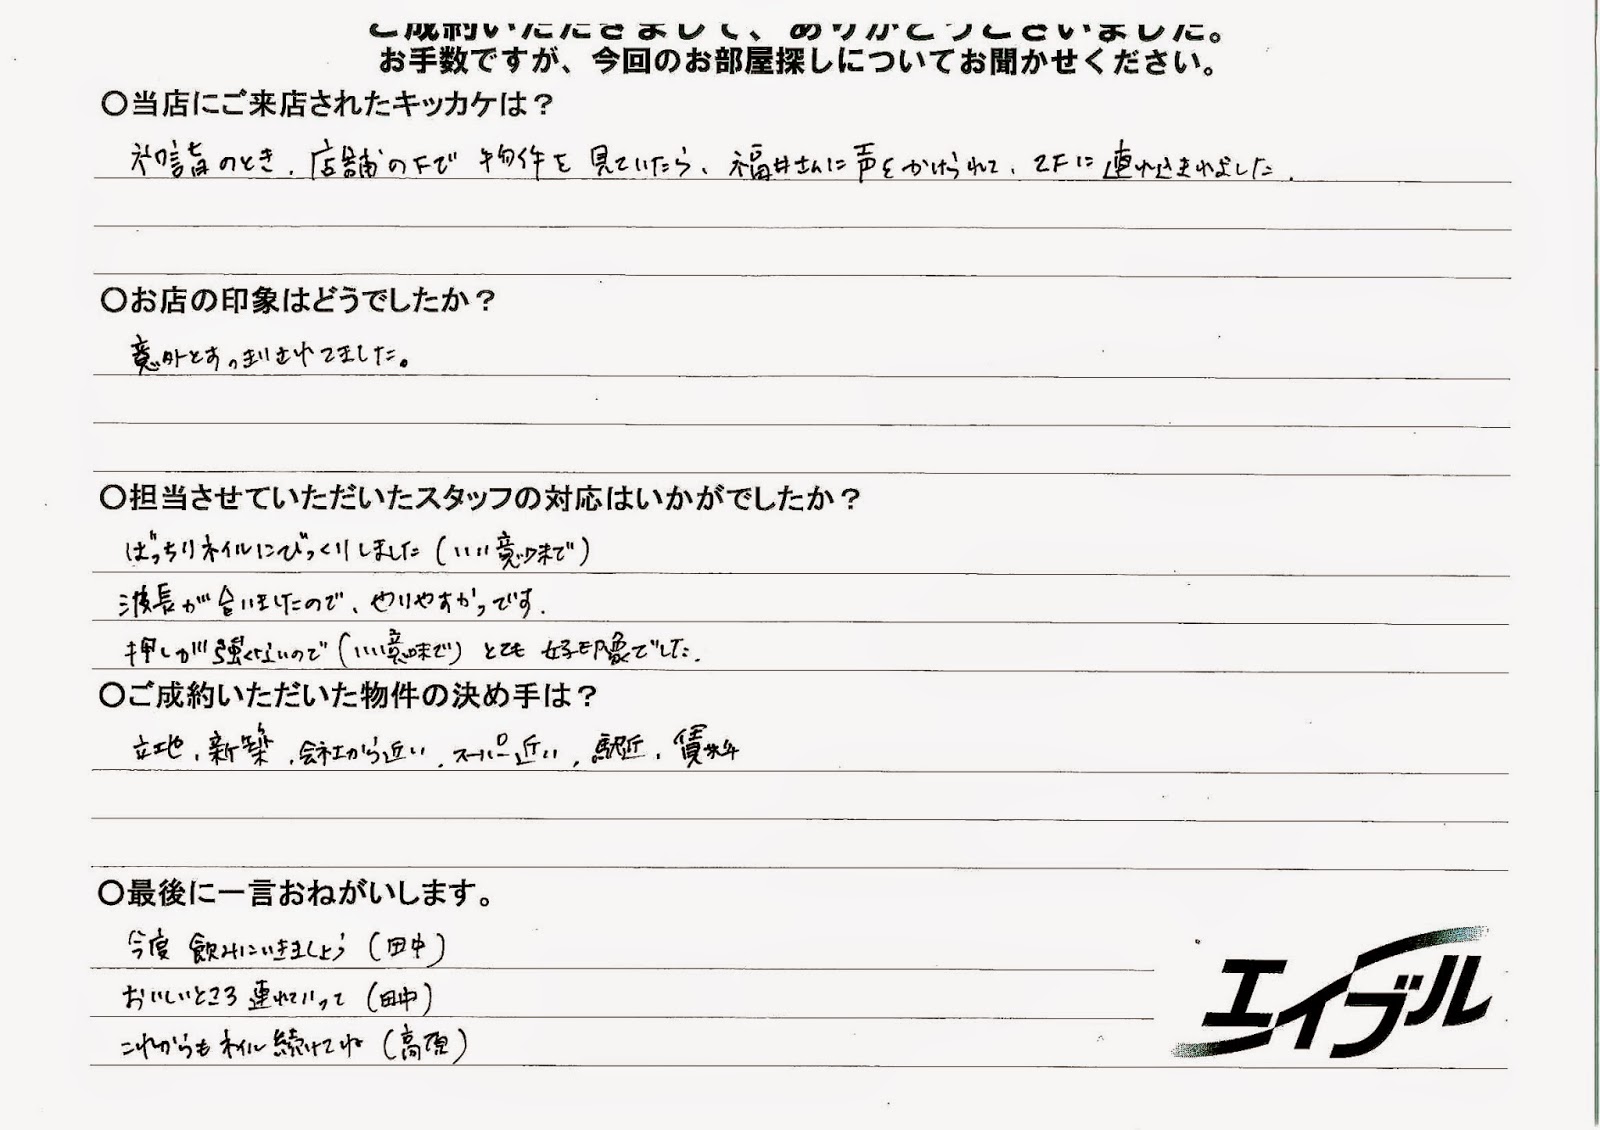 ご成約いただきまして、ありがとうございました。
お手数ですが、今回のお部屋探しについてお聞かせください。
〇当店にご来店されたキッカケは？
初詣のとき、店舗の下で物件を見ていたら、福井さんに声をかけられて、2Fに連れ込まれました。
〇お店の印象はどうでしたか？
意外とあっまりされてました。
〇担当させていただいたスタッフの対応はいかがでしたか？
ばっちりネイルにびっくりしました（いい意味で）
波長が合いましたので、やりやすかっです。
押しが強くないので（いい意味で）とても好印象でした。
〇ご成約いただいた物件の決め手は？
立地、新築、会社から近い、スーパー近い、駅近、賃料
〇最後に一言おねがいします。
今度飲みにいきましょう（田中）
おいしいところ連れていって（田中）
これからもネイル続けてね（高原）
エイブル